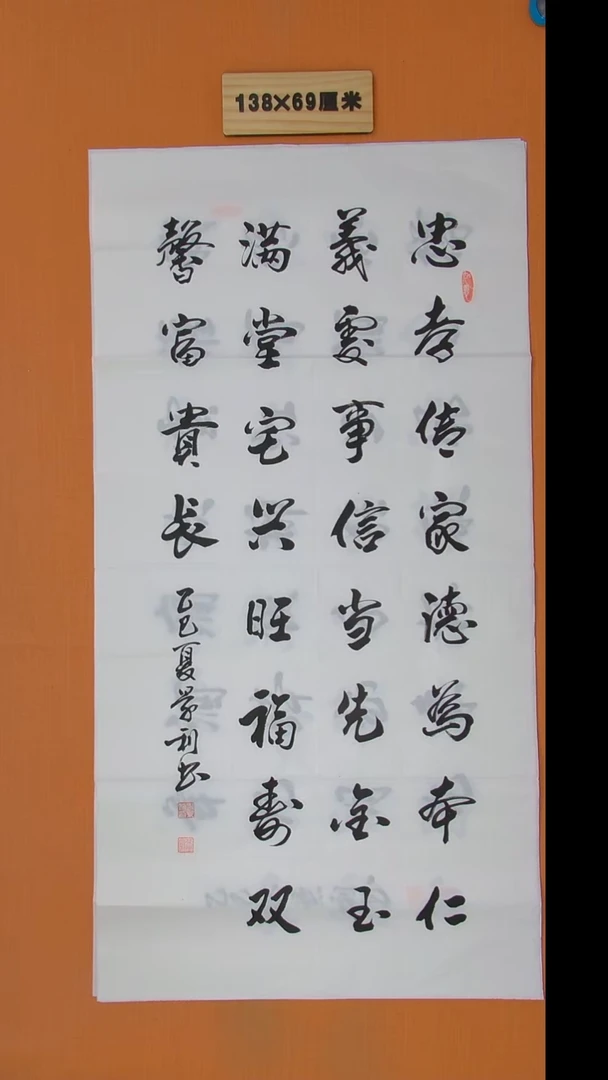 138×69厘米
忠孝传家德為本仁
義處事信当先金玉
满堂宅兴旺福寿双
馨富貴長
乙巳夏景利书